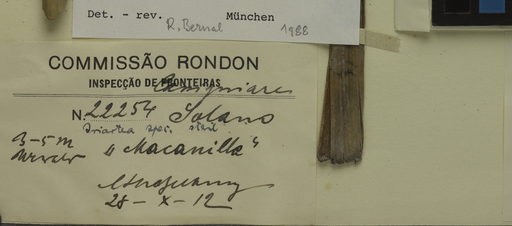 Det. - rev. München
R. Bernal 1988
COMMISSÃO RONDON
INSPECÇÃO DE FRONTEIRAS
N. 22254 Solano
Iriartea spec.
3-5 m
"Macanilla"
28-X-12